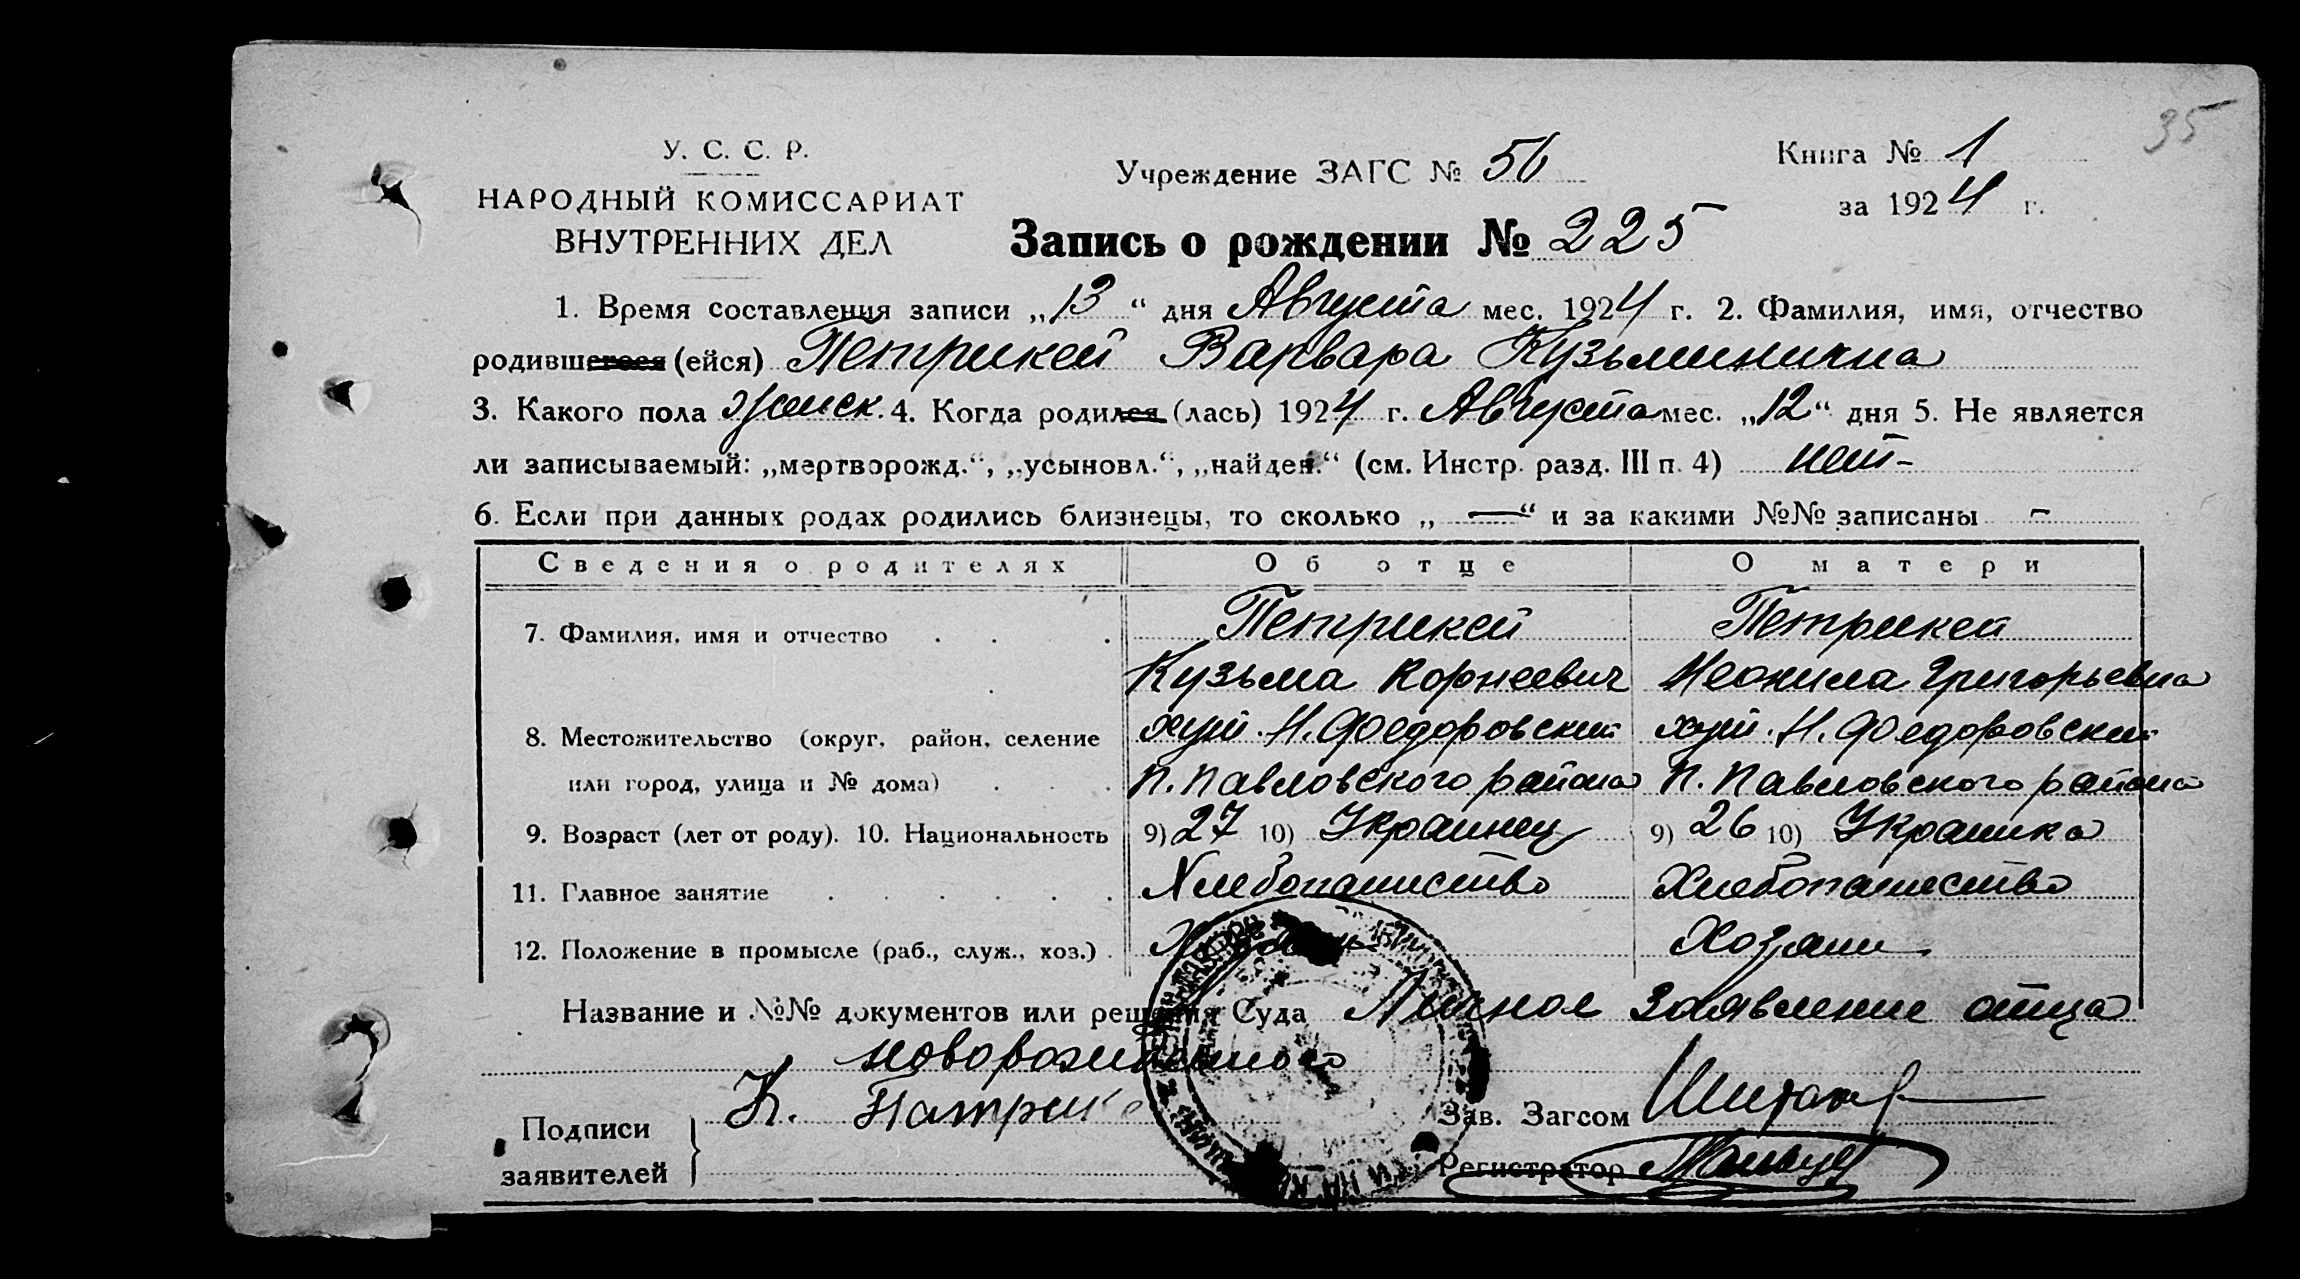 35
У. С. С. Р.
НАРОДНЫЙ КОМИССАРИАТ
ВНУТРЕННИХ ДЕЛ
Учреждение ЗАГС № 56
Книга № 1
за 1924 г.
Запись о рождении № 225
1. Время составления записи „13“ дня Августа мес. 1924 г. 2. Фамилия, имя, отчество
родившегося (ейся) Петрикей Варвара Кузьминична
3. Какого пола женск. 4. Когда родился (лась) 1924 г. Августа мес. „12“ дня 5. Не является
ли записываемый: „мертворожд.“, „усыновл.“, „найден.“ (см. Инстр. разд. III п. 4) нет-
6. Если при данных родах родились близнецы, то сколько „—“ и за какими №№ записаны -
Сведения о родителях Об отце О матери
7. Фамилия, имя и отчество Петрикей Петрикей
Кузьма Корнеевич Неонила Григорьевна
8. Местожительство (округ, район, селение хут. Н. Федоровский хут. Н. Федоровский
или город, улица и № дома) П. Павловского района П. Павловского района
9. Возраст (лет от роду). 10. Национальность 9) 27 10) Украинец 9) 26 10) Украинка
11. Главное занятие Хлебопашество Хлебопашество
12. Положение в промысле (раб., служ., хоз.) Хозяин
Название и №№ документов или решения Суда Личное заявление отца
новорожденного
Подписи
заявителей
К.
Зав. Загсом
Регистратор